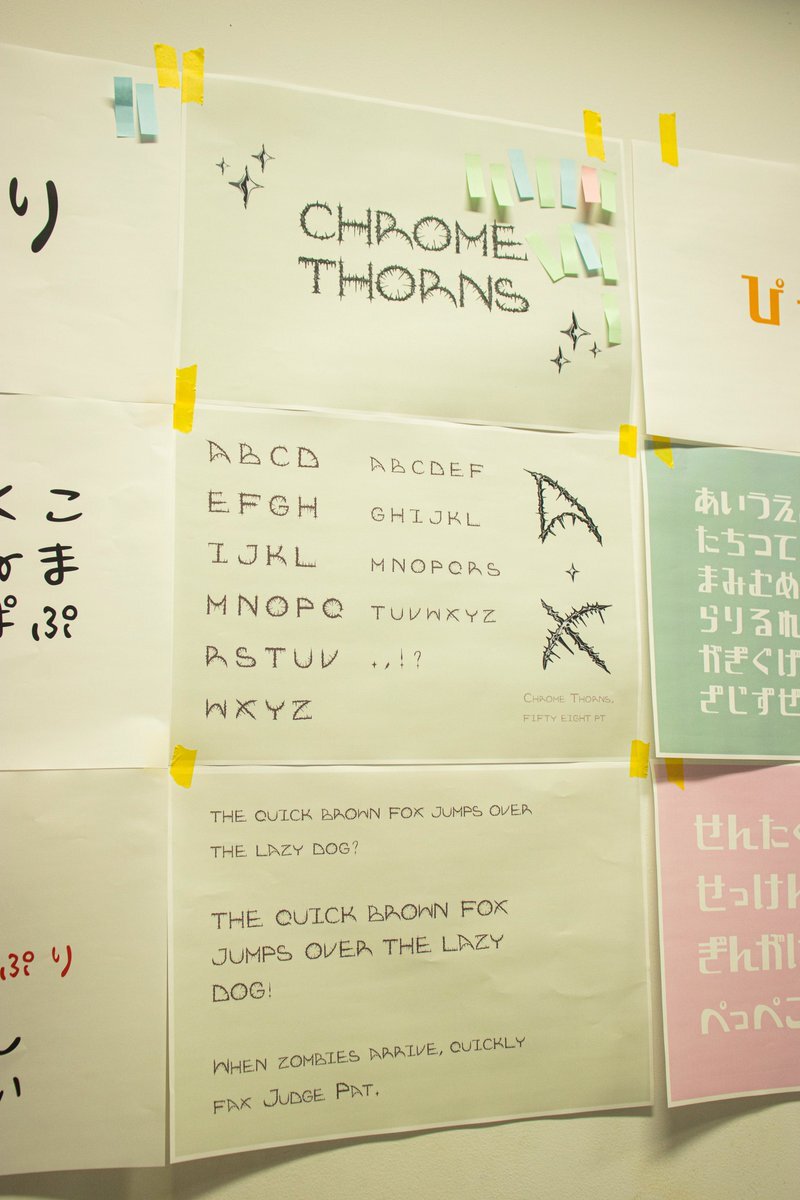 り
CHROME
THORNS
ABCD
EFGH
IJKL
MNOPQ
RSTUV
WXYZ
ABCDEF
GHIJKL
MNOPQRS
TUVWXYZ
.,!?
A
X
Chrome Thorns,
FIFTY EIGHT PT
THE QUICK BROWN FOX JUMPS OVER
THE LAZY DOG?
THE QUICK BROWN FOX
JUMPS OVER THE LAZY
DOG!
When zombies arrive, quickly
fax Judge Pat.
く こ
ま
ぽ ぷ
ぷり
い
ぴ
あいうえ
たちつて
まみむめ
らりるれ
がぎぐげ
ざじずぜ
せんたく
せっけん
ぎんが
ぺっぺこ